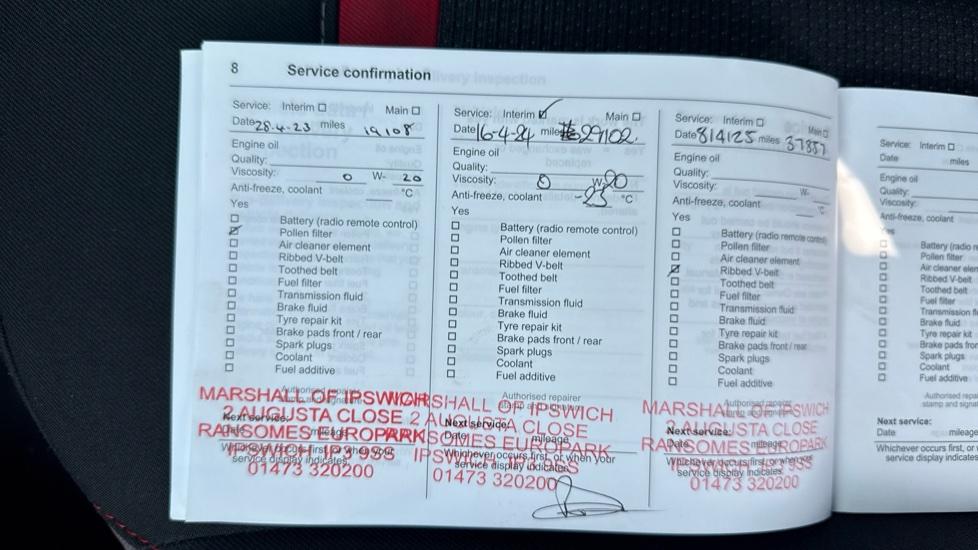 8 Service confirmation
Service: Interim Main
Date 28-4-23 miles 19108
Engine oil
Quality:
Viscosity: 0 W- 20
Anti-freeze, coolant °C
Yes
Battery (radio remote control)
Pollen filter
Air cleaner element
Ribbed V-belt
Toothed belt
Fuel filter
Transmission fluid
Brake fluid
Tyre repair kit
Brake pads front / rear
Spark plugs
Coolant
Fuel additive
Authorised repairer
MARSHALL OF IPSWICH
2 AUGUSTA CLOSE
Next service:
RANSOMES EUROPARK
Date mileage
IPSWICH IP3 9SS
Whichever occurs first, or when your
service display indicates
01473 320200
Service: Interim Main
Date 16-4-24 miles 29102.
Engine oil
Quality:
Viscosity: 0 W 20
Anti-freeze, coolant -25 °C
Yes
Battery (radio remote control)
Pollen filter
Air cleaner element
Ribbed V-belt
Toothed belt
Fuel filter
Transmission fluid
Brake fluid
Tyre repair kit
Brake pads front / rear
Spark plugs
Coolant
Fuel additive
Authorised repairer
stamp and signature
MARSHALL OF IPSWICH
2 AUGUSTA CLOSE
Next service:
RANSOMES EUROPARK
Date mileage
Whichever occurs first, or when your
service display indicates
01473 320200
Service: Interim Main
Date 8/4/25 miles 37887
Engine oil
Quality:
Viscosity: W-
Anti-freeze, coolant °C
Yes
Battery (radio remote control)
Pollen filter
Air cleaner element
Ribbed V-belt
Toothed belt
Fuel filter
Transmission fluid
Brake fluid
Tyre repair kit
Brake pads front / rear
Spark plugs
Coolant
Fuel additive
Authorised repairer
MARSHALL OF IPSWICH
2 AUGUSTA CLOSE
Next service:
RANSOMES EUROPARK
Date mileage
IPSWICH IP3 9SS
Whichever occurs first, or when your
service display indicates
01473 320200
Service: Interim
Date miles
Engine oil
Quality:
Viscosity:
Anti-freeze, coolant
Yes
Battery (radio r
Pollen filter
Air cleaner elem
Ribbed V-belt
Toothed belt
Fuel filter
Transmission fl
Brake fluid
Tyre repair kit
Brake pads fron
Spark plugs
Coolant
Fuel additive
Authorised repa
stamp and signa
Next service:
Date mileage
Whichever occurs first, or
service display indicates